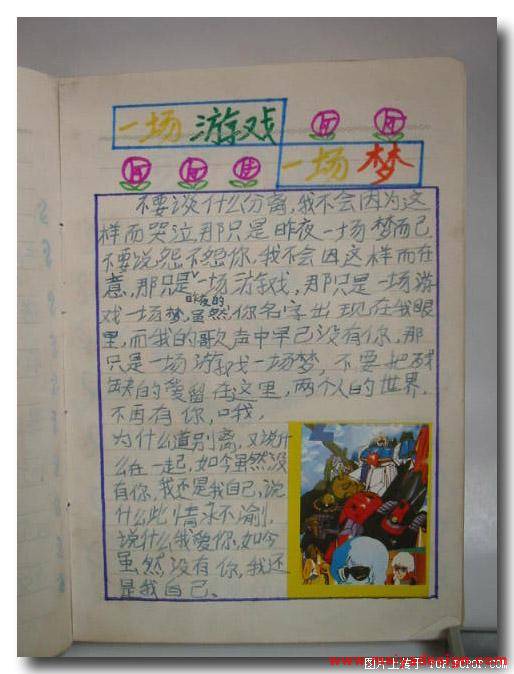 一场 游戏
一场 梦
不要谈什么分离,我不会因为这
样而哭泣,那只是昨夜一场梦而已
不要说怨不怨你,我不会因这样而在
意,那只是一场游戏,那只是一场游
戏一场梦,昨夜的虽然你名字出现在我眼
里,而我的歌声中早已没有你,那
只是一场游戏一场梦,不要把残
缺的爱留在这里,两个人的世界,
不再有你,口我,
为什么道别离,又说什
么在一起,如今虽然没
有你,我还是我自己,说
什么此情来不渝,
说什么我爱你,如今
虽然没有你,我还
是我自己.
图片上传于